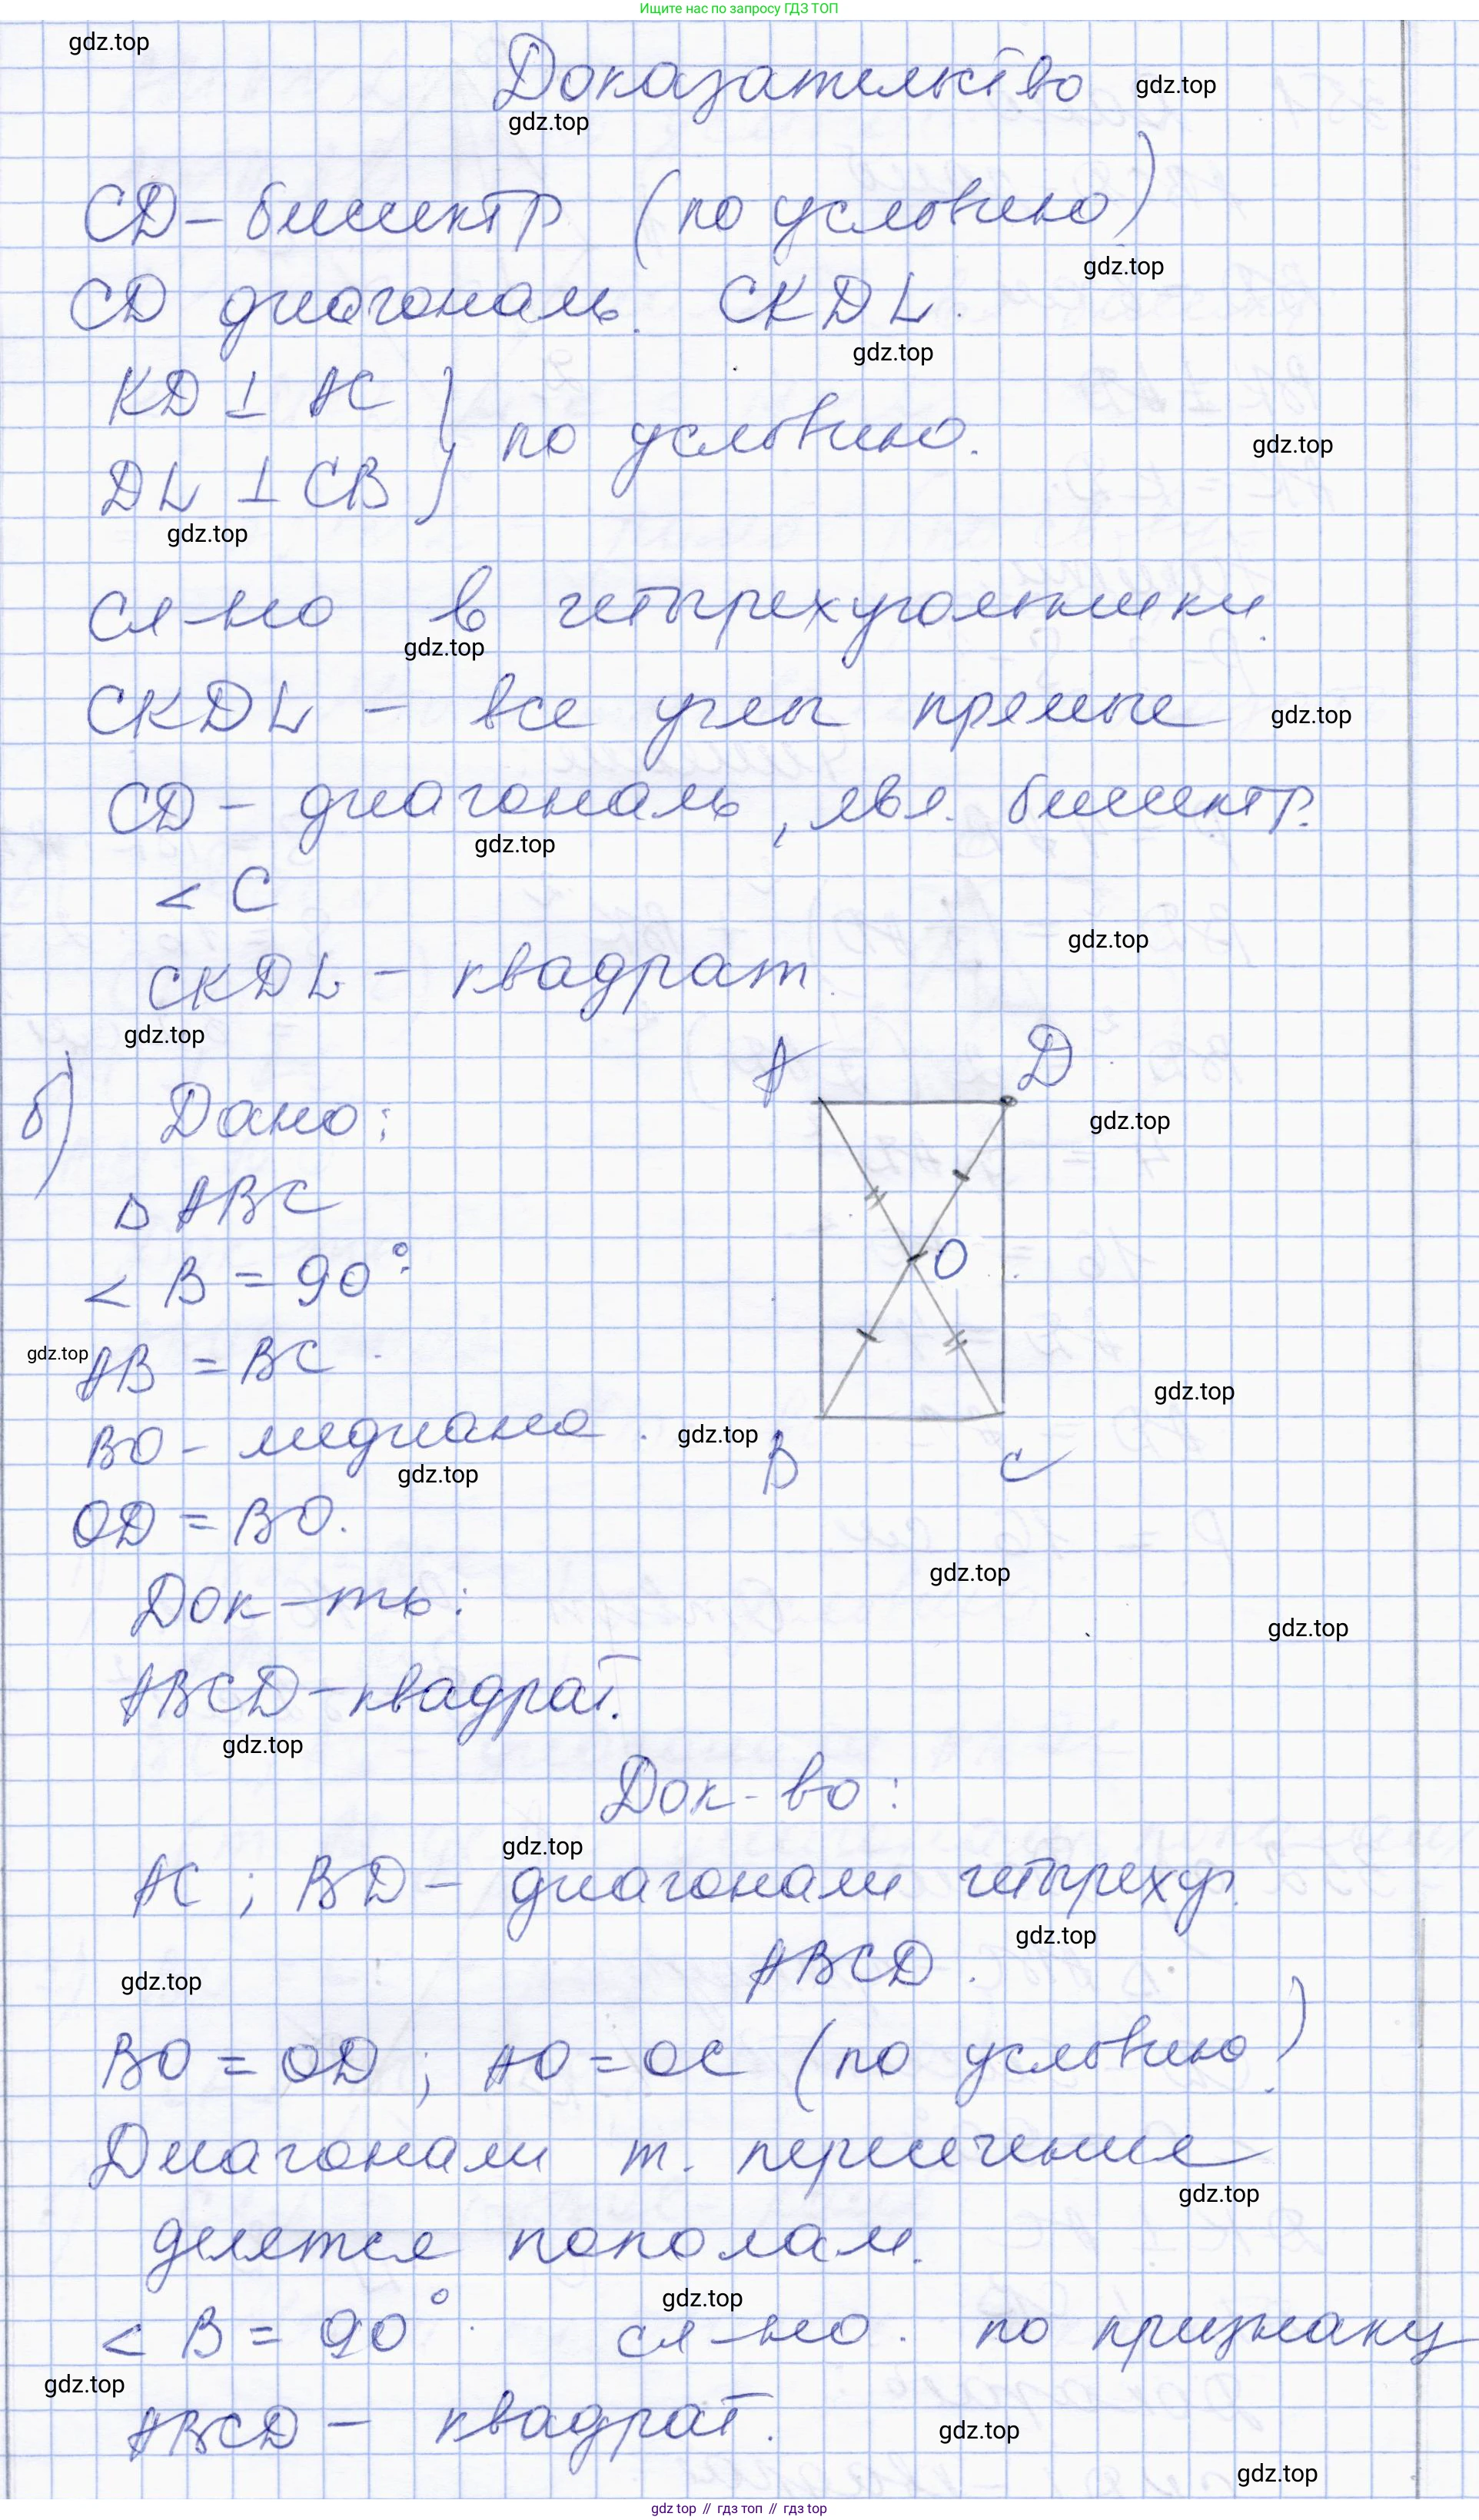 Ищите нас по запросу ГДЗ ТОП
gdz.top
Доказательство
gdz.top
gdz.top
CD – биссектр (по условию)
gdz.top
CD диагональ. CKDL.
gdz.top
KD ⊥ AC
} по условию.
gdz.top
DL ⊥ CB
gdz.top
Сл-но в четырехугольники
gdz.top
CKDL – все углы прямые
gdz.top
CD – диагональ, явл. биссектр.
gdz.top
< C
gdz.top
CKDL – квадрат
gdz.top
A D
б) Дано:
gdz.top
△ ABC
< B = 90°
O
gdz.top
AB = BC
gdz.top
BO – медиана.
gdz.top
B C
gdz.top
OD = BO.
gdz.top
Док-ть:
gdz.top
ABCD – квадрат.
gdz.top
Док-во:
gdz.top
AC; BD – диагонали четыреху.
gdz.top
ABCD.
gdz.top
BO = OD; AO = OC (по условию)
Диагонали т. пересечение
gdz.top
делятся пополам.
gdz.top
< B = 90° сл-но. по признаку
gdz.top
ABCD – квадрат.
gdz.top
gdz.top
gdz top // гдз топ // gdz top